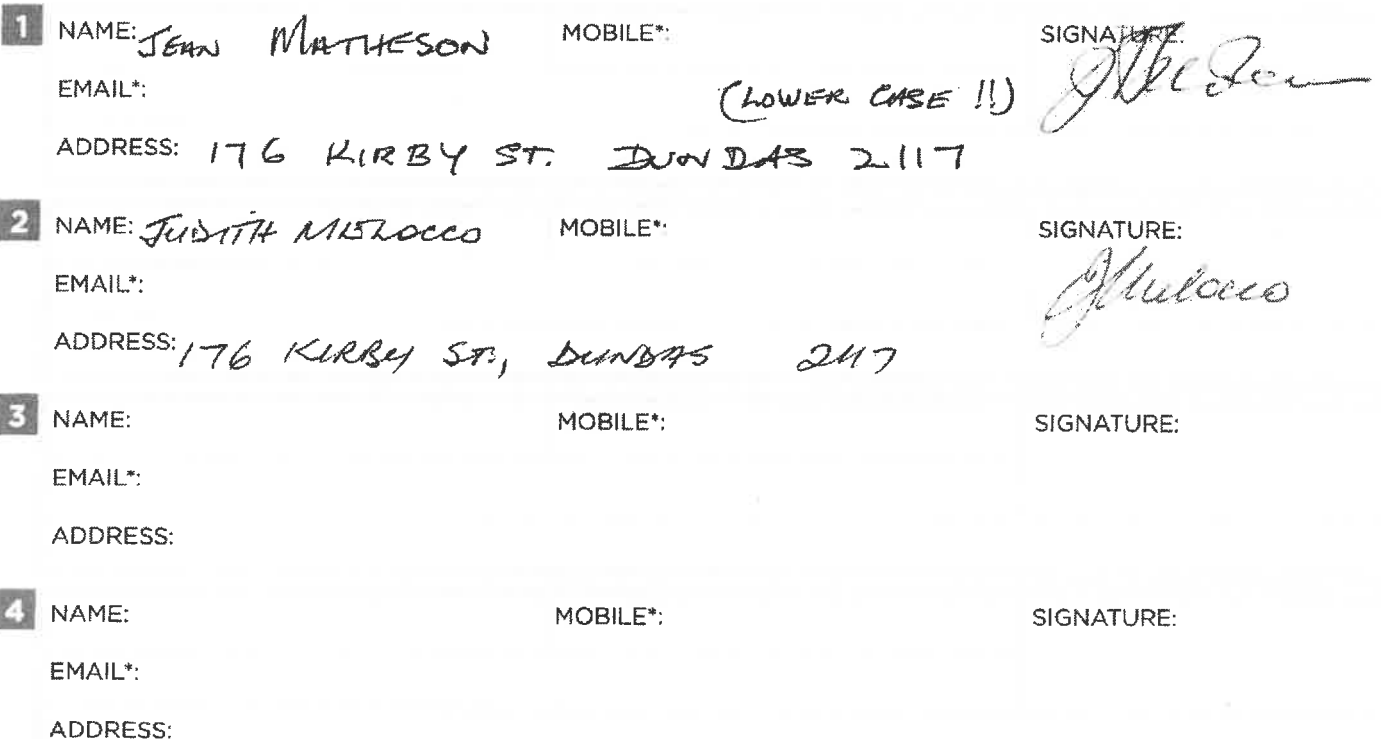 1 NAME: JEAN MATHESON MOBILE*: SIGNATURE:
EMAIL*: (LOWER CASE !!)
ADDRESS: 176 KIRBY ST. DUNDAS 2117
2 NAME: JUDITH MELOCCO MOBILE*: SIGNATURE:
EMAIL*: JMelocco
ADDRESS: 176 KIRBY ST., DUNDAS 2117
3 NAME: MOBILE*: SIGNATURE:
EMAIL*:
ADDRESS:
4 NAME: MOBILE*: SIGNATURE:
EMAIL*:
ADDRESS: